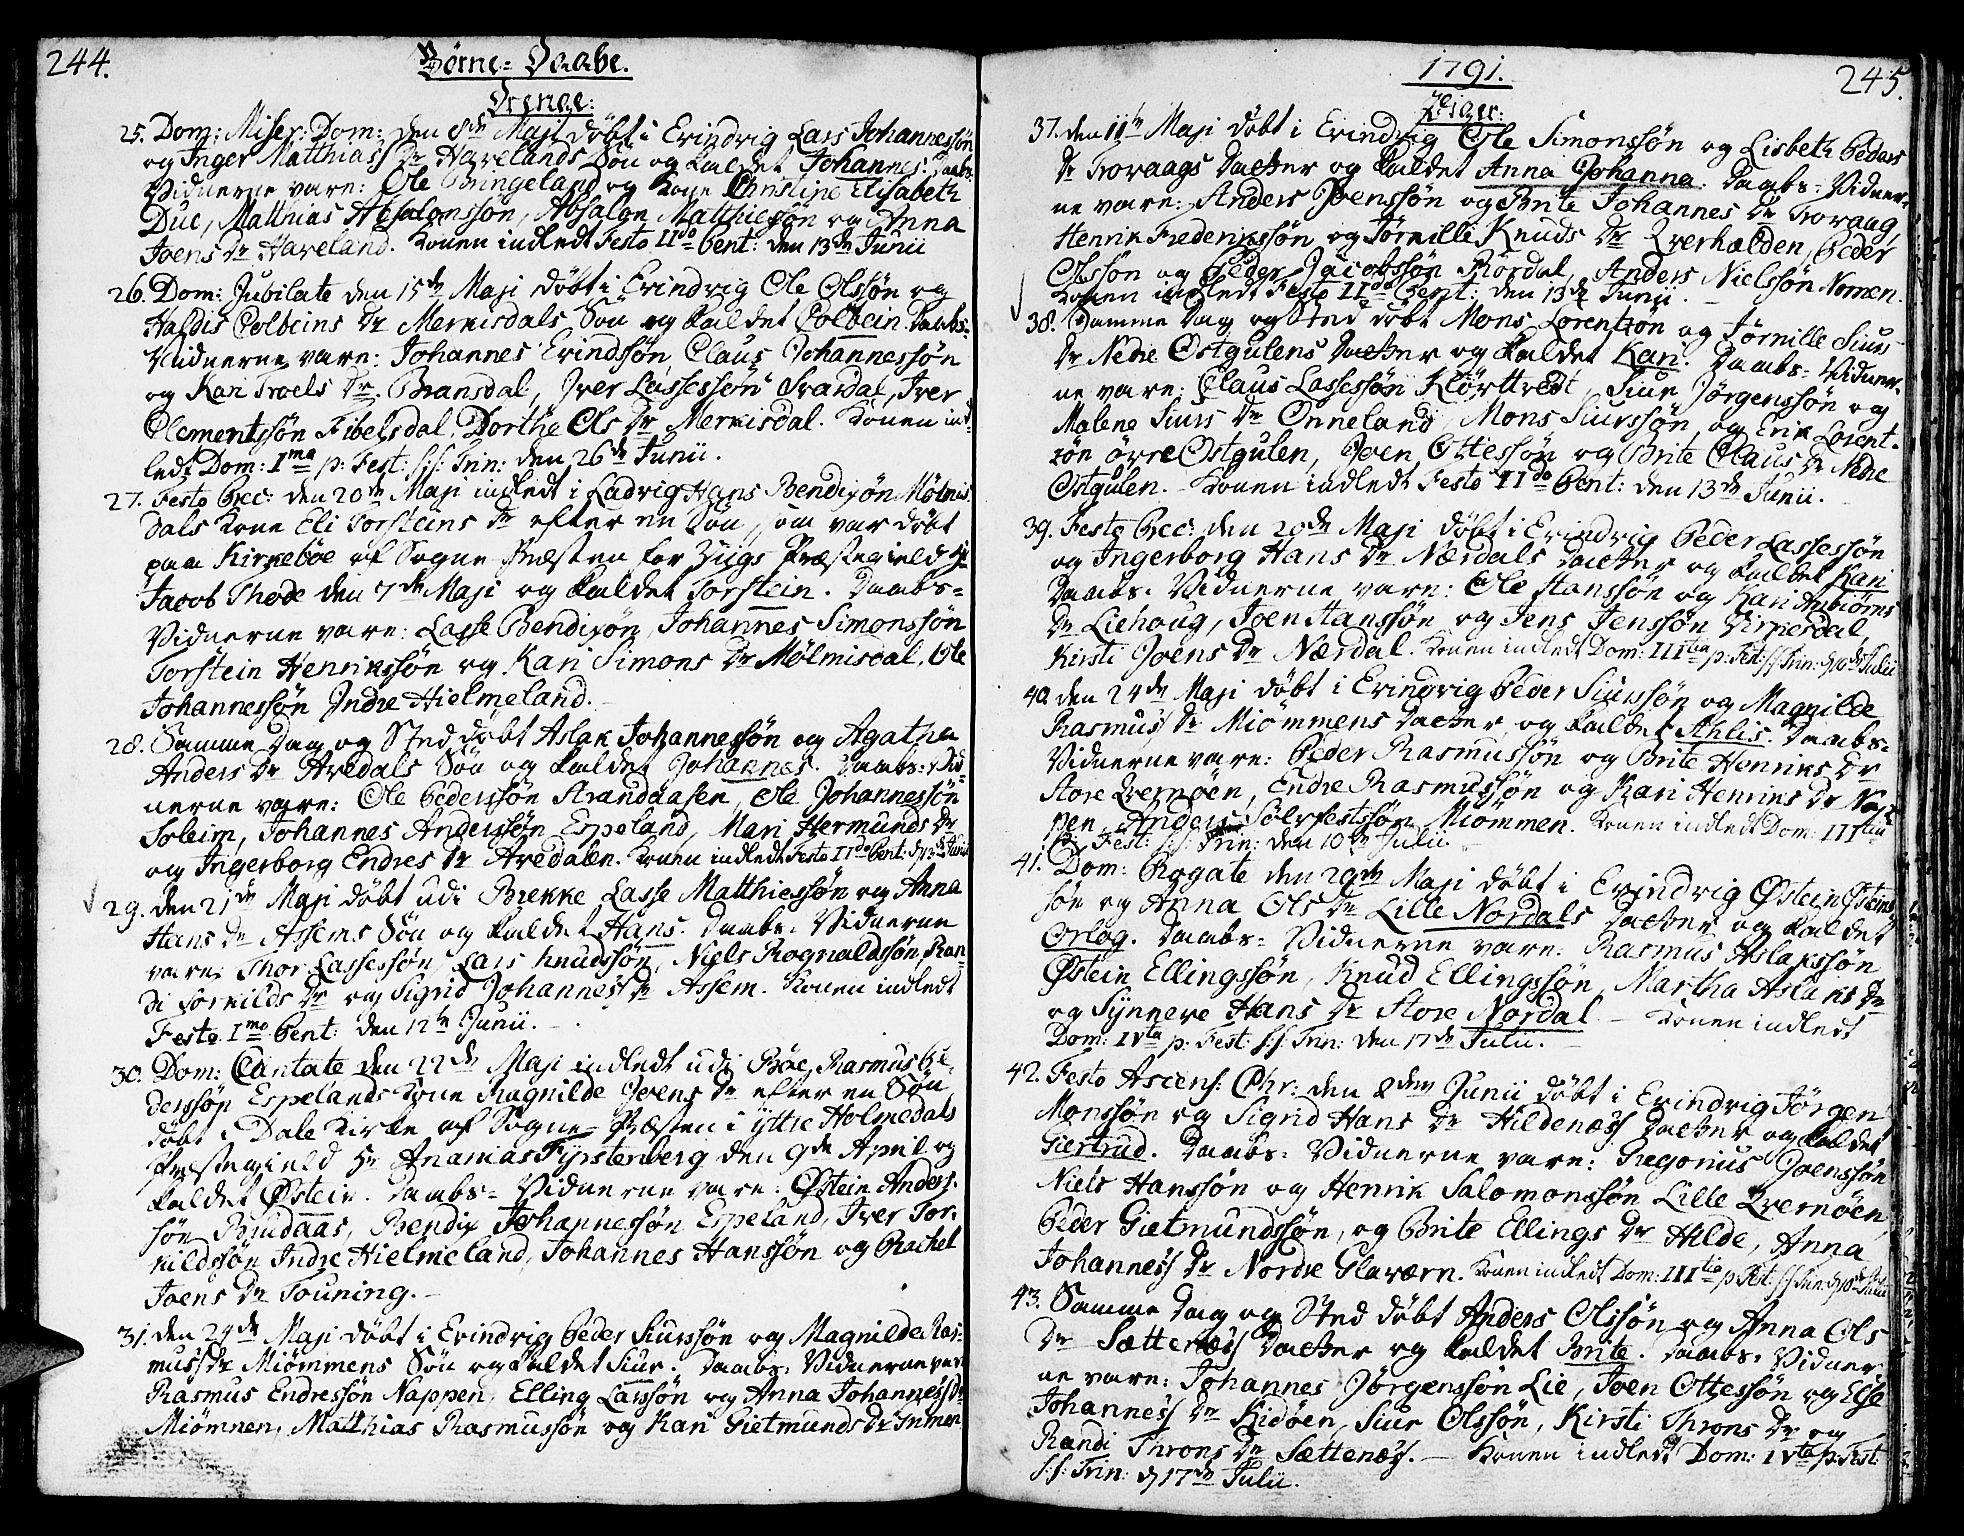 244.
Børne-Daabe.
Drenge:
25. Dom: Miser: Dom: den 8de Maji døbt i Evindvig Lars Johannessøn
og Inger Matthiass Dr Havelands Søn og kaldet Johannes. Daabs-
Vidnerne vare: Ole Bringeland og Kone Christine Elisabeth
Due, Matthias Absalonssøn, Absalon Matthiessøn og Anna
Joens Dr Haveland. Konen indledt Festo IIdo Pent: den 13de Junii
26. Dom: Jubilate den 15de Maji døbt i Evindvig Ole Olssøn og
Haldis Colbeins Dr Merkisdals Søn og kaldet Colbein. Daabs-
Vidnerne vare: Johannes Erindssøn, Claus Johannessøn
og Kari Troels Dr Bransdal, Iver Lassessøn Svardal, Iver
Clementssøn Fibelsdal, Dorthe Ols Dr Merkisdal. Konen ind-
ledt Dom: Ima p: Fest: S:S: Trin: den 26de Junii.
27. Festo Prec: den 20de Maji indledt i Ladvig Hans Bendixøn Mølmis-
dals Kone Eli Torsteins Dr efter en Søn, som var døbt
paa Kirkebøe af Sogne Præsten for Evigs Præstegield Hr
Jacob Thode den 7de Maji og kaldet Torstein. Daabs-
Vidnerne vare: Lasse Bendixøn, Johannes Simonssøn
Torstein Henrikssøn og Kari Simons Dr Mølmisdal, Ole
Johannessøn Indre Hielmeland.
28. Samme Dag og Sted døbt Aslak Johannessøn og Agatha
Anders Dr Aredals Søn og kaldet Johannes. Daabs-Vid-
nerne vare: Ole Pederssøn Strandaasen, Ole Johannessøn
Soleim, Johannes Anderssøn Espeland, Mari Hermunds Dr
og Ingerborg Endres Dr Aredalen. Konen indledt Festo IIdo Pent: d 13de Junii
29. den 21de Maji døbt udi Brekke Lasse Matthiessøn og Anna
Hans Dr Assems Søn og kaldet Hans. Daabs-Vidnerne
vare: Thor Lassessøn, Lars Knudssøn, Niels Rognaldssøn, Ran-
di Torkilds Dr og Sigrid Johannes Dr Assem. Konen indledt
Festo Imo Pent: den 12te Junii.
30. Dom: Cantate den 22de Maji indledt udi Bøe, Rasmus Pe-
derssøn Espelands Kone Ragnilde Joens Dr efter en Søn
døbt i Dale Kirke af Sogne-Præsten i Yttre Holmedals
Præstegield Hr Ananias Fyrstenberg den 9de April og
kaldet Østein. Daabs-Vidnerne vare: Østein Anders-
søn Brudaas, Bendix Johannessøn Espeland, Iver Tor-
kildssøn Indre Hielmeland, Johannes Hanssøn og Rachel
Joens Dr Touning.
31. den 24de Maji døbt i Evindvig Peder Siurssøn og Magnilde Ras-
mus Dr Miømmens Søn og kaldet Siur. Daabs-Vidnerne vare
Rasmus Endressøn Nappen, Elling Larssøn og Anna Johannes Dr
Miømnen, Matthias Rasmussøn og Kari Gietmunds Dr Inmen
1791.
245.
Piger:
37. den 11te Maji døbt i Evindvig Ole Simonssøn og Lisbeth Peders
Dr Trovaags Datter og kaldet Anna Johanna. Daabs-Vidner-
ne vare: Anders Joenssøn og Brite Johannes Dr Trovaag
Henrik Frederikssøn og Jørnille Knuds Dr Qverhalden, Peder
Olssøn og Peder Jacobssøn Rørdal, Anders Nielssøn Nomen.
Konen indledt Festo IIdo Pent: den 13de Junii.
38. Samme Dag og Sted døbt Mons Lorentzøn og Jørnille Siurs
Dr Nedre Østgulens Datter og kaldet Kari. Daabs-Vidner-
ne vare: Claus Lassessøn Klørtvedt, Siur Jørgenssøn og
Malene Siurs Dr Onneland, Mons Siurssøn og Erik Lorent-
zøn øvre Østgulen, Joen Ottessøn og Brite Claus Dr Nedre
Østgulen. Konen indledt Festo IIdo Pent: den 13de Junii.
39. Festo Prec: den 20de Maji døbt i Evindvig Peder Lassessøn
og Ingerborg Hans Dr Nærdals Datter og kaldet Kari
Daabs-Vidnerne vare: Ole Hanssøn og Kari Anbiørns
Dr Liehoug, Joen Hanssøn og Jens Jenssøn Virkesdal,
Kirsti Joens Dr Nærdal. Konen indledt Dom: IIItia p: Fest: S:S: Trin: d 10de Julii
40. den 24de Maji døbt i Evindvig Peder Siurssøn og Magnilde
Rasmus Dr Miømmens Datter og kaldet Ahlis. Daabs-
Vidnerne vare: Peder Rasmussøn og Brite Henriks Dr
Store Qvernøen, Endre Rasmussøn og Kari Henriks Dr Nap-
pen, Anders Sølfestssøn Miømmen. Konen indledt Dom: IIItia
p: Fest: S:S: Trin: den 10de Julii.
41. Dom: Rogate den 29de Maji døbt i Evindvig Østein Østeins-
søn og Anna Ols Dr Lille Nordals Datter og kaldet
Orlog. Daabs-Vidnerne vare: Rasmus Aslakssøn
Østein Ellingssøn, Knud Ellingssøn, Martha Aslaks Dr
og Synneve Hans Dr Store Nordal. Konen indledt
Dom: IVta p: Fest: S:S: Trin: den 17de Julii.
42. Festo Ascens: Chr: den 2den Junii døbt i Evindvig Jørgen
Monssøn og Sigrid Hans Dr Hildenes Datter og kaldet
Giertrud. Daabs-Vidnerne vare: Gregorius Joenssøn
Niels Hanssøn og Henrik Salomonssøn Lille Qvernøen,
Peder Gietmundssøn, og Brite Ellings Dr Hilde, Anna
Johannes Dr Nordre Glaværn. Konen indledt Dom: IIItia p: Fest: S:S: Trin: d 10de Julii
43. Samme Dag og Sted døbt Anders Olssøn og Anna Ols
Dr Sættenes Datter og kaldet Brite. Daabs-Vidner-
ne vare: Johannes Jørgenssøn Lie, Joen Ottessøn og Else
Johannes Dr Kidøen, Siur Olssøn, Kirsti Throns Dr og
Randi Throns Dr Sættenes. Konen indledt Dom: IVta p: Fest:
S:S: Trin: d 17de Julii.